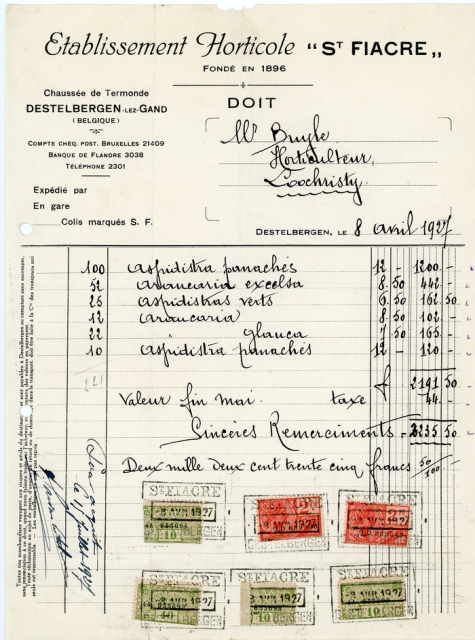 Etablissement Horticole "ST FIACRE"
FONDÉ EN 1896
Chaussée de Termonde
DESTELBERGEN-LEZ-GAND
(BELGIQUE)
COMPTE CHÈQ. POST. BRUXELLES 21409
BANQUE DE FLANDRE 3038
TÉLÉPHONE 2301
DOIT
Mr Bruyle
Horticulteur,
Loochristy.
Expédié par
En gare
Colis marqués S. F.
DESTELBERGEN, LE 8 avril 1927
100 aspidistra panachés 12 - 1200 -
52 Araucaria excelsa 8.50 442 -
25 aspidistras verts 6.50 162.50
12 Araucaria 8.50 102 -
22 " glauca 7.50 165 -
10 aspidistra panachés 12 - 120 -
f 2191.50
Valeur fin mai. taxe 44 -
Sincères Remerciments = 2235.50
Deux mille deux cent trente cinq francs 50/100
Pour acquit
ST FIACRE
8 AVR 1927
DESTELBERGEN
ST FIACRE
8 AVR 1927
10